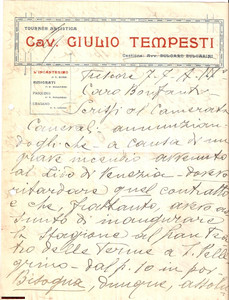 TOURNÉE ARTISTICA
Cav. GIULIO TEMPESTI
L'INCANTESIMO
EMIGRANTI
Trescore 7.7.
Caro Bonfanti
Scrissi al Camerata
Canevali annunzian
dogli che a causa di un
grave incendio avvenuto
al Lido di Venezia - dovevo
ritardare quel contratto
e che, frattanto, avevo as
sunto di inaugurare
la stagione del Gran Tea
tro delle Terme a S. Pelle
grino - dal p. 10 in poi.
Bisogna, dunque, assolu